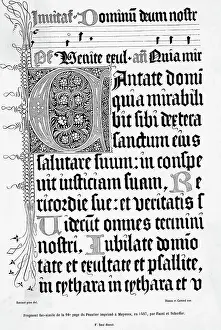 Inuitaf. Dominum deum nostr
Pſ Venite exul. añ Quia mir
CAntate domi
quia mirabilib
bit sibi dextera
sanctum eius
salutare suum: in conspe
uit iusticiam suam, Re
ricordie sue: et veritatis s
Uiderunt omnes termini
nostri. Iubilate domino
tate et exultate et psallite,
in cythara in cythara et v
Fragment fac-simile de la 94e page du Psautier imprimé à Mayence, en 1457, par Faust et Schoeffer.